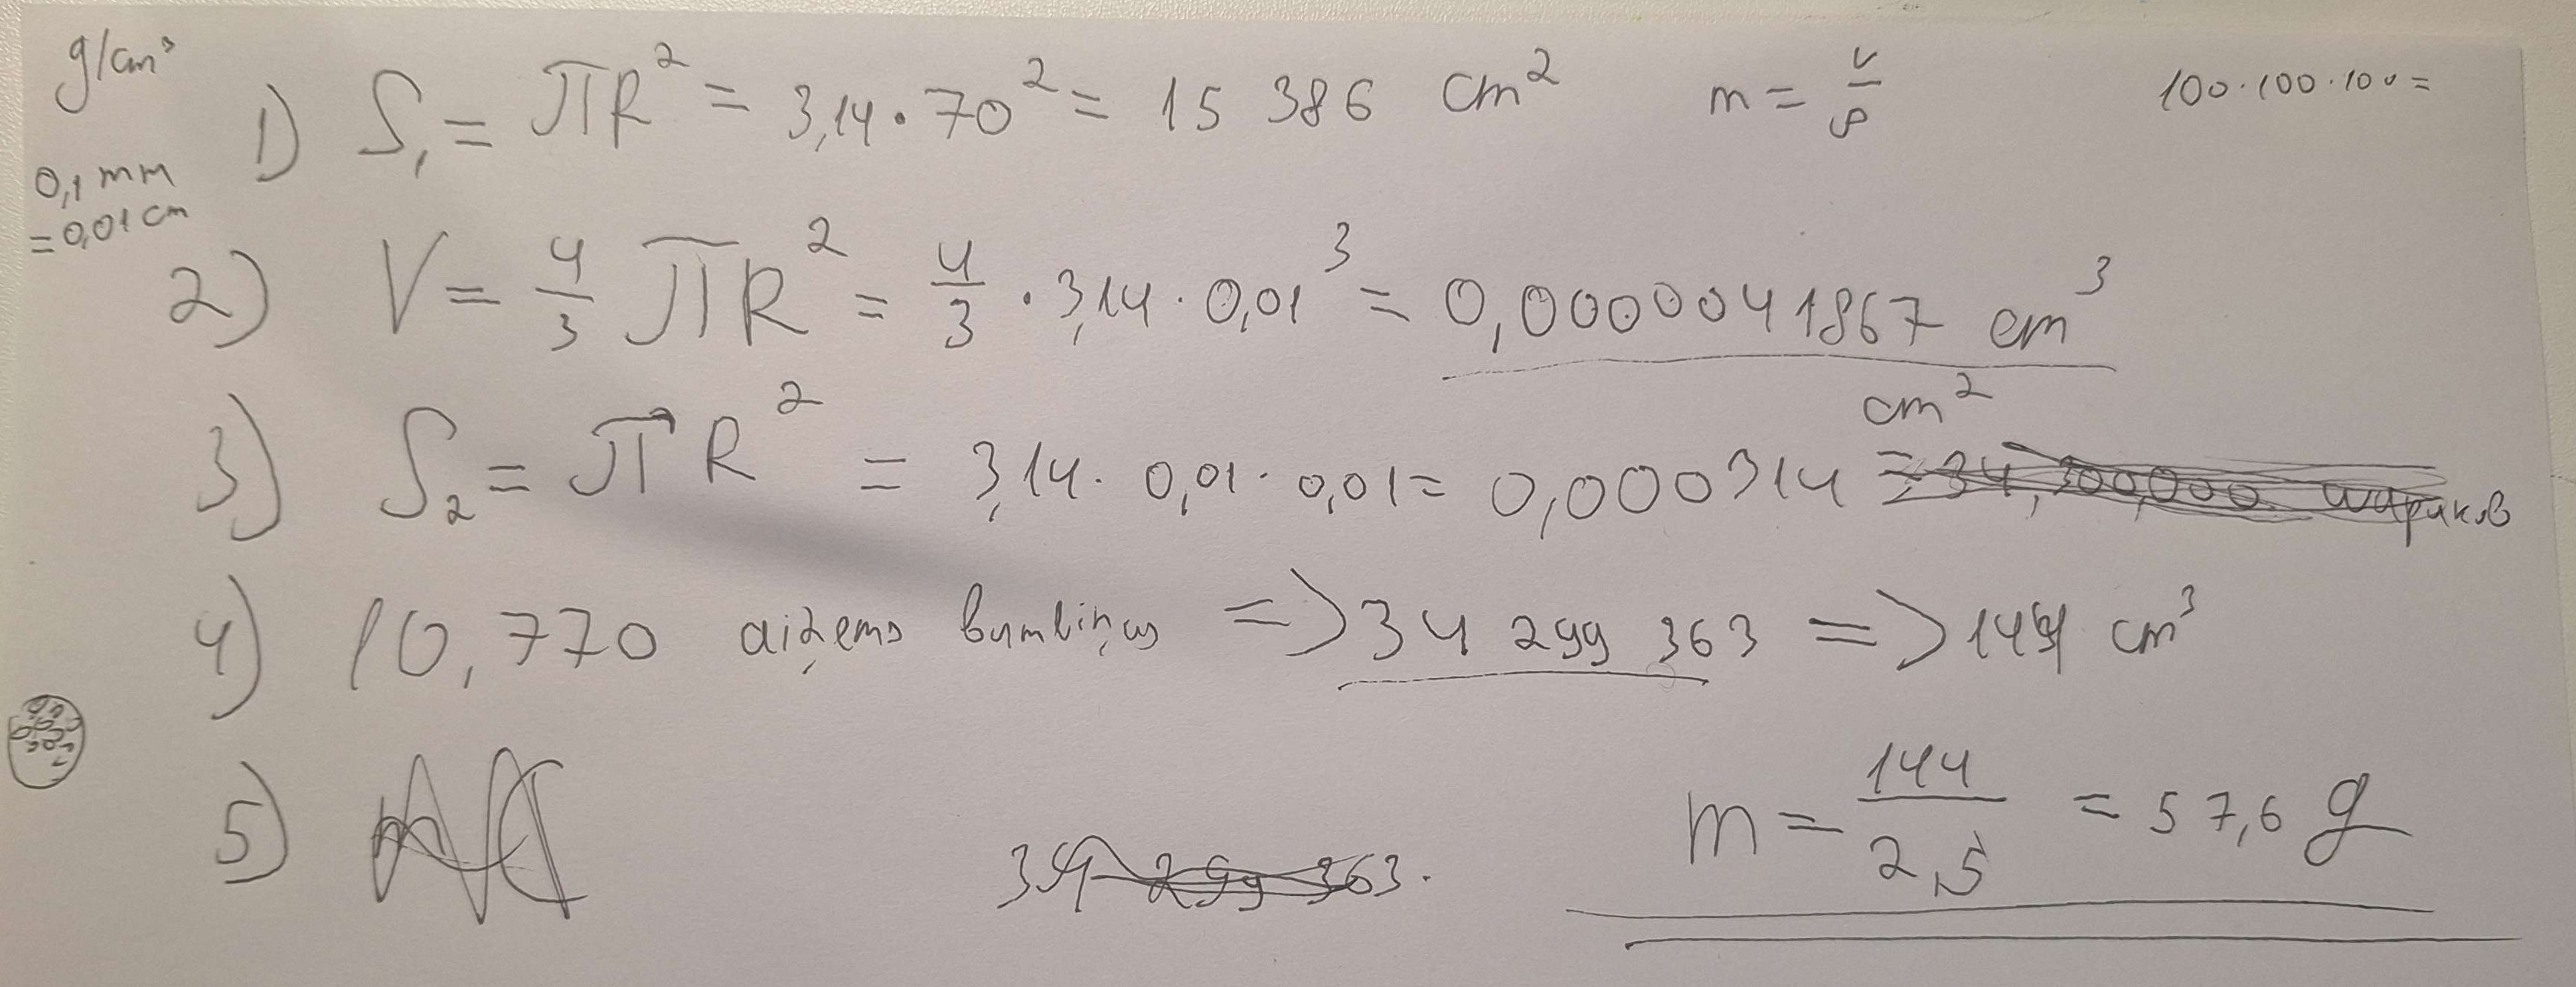 g/cm³
1) S₁ = πR² = 3,14·70² = 15 386 cm²
m = V/ρ
100·100·100=
0,1 mm
= 0,01 cm
2) V = 4/3 πR² = 4/3 · 3,14 · 0,01³ = 0,0000041867 cm³
3) S₂ = πR² = 3,14· 0,01· 0,01= 0,000314 cm²
4) 10,770 aizņems bumbiņas => 34 299 363 => 144 cm³
5)
34 299 363.
m = 144/2,5 = 57,6 g